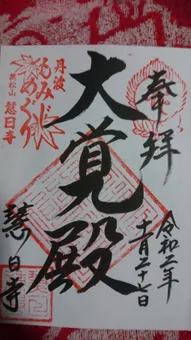 奉拝
令和二年
十一月二十七日
大覚殿
丹波
もみじ
めぐり
慧日寺
慧日寺